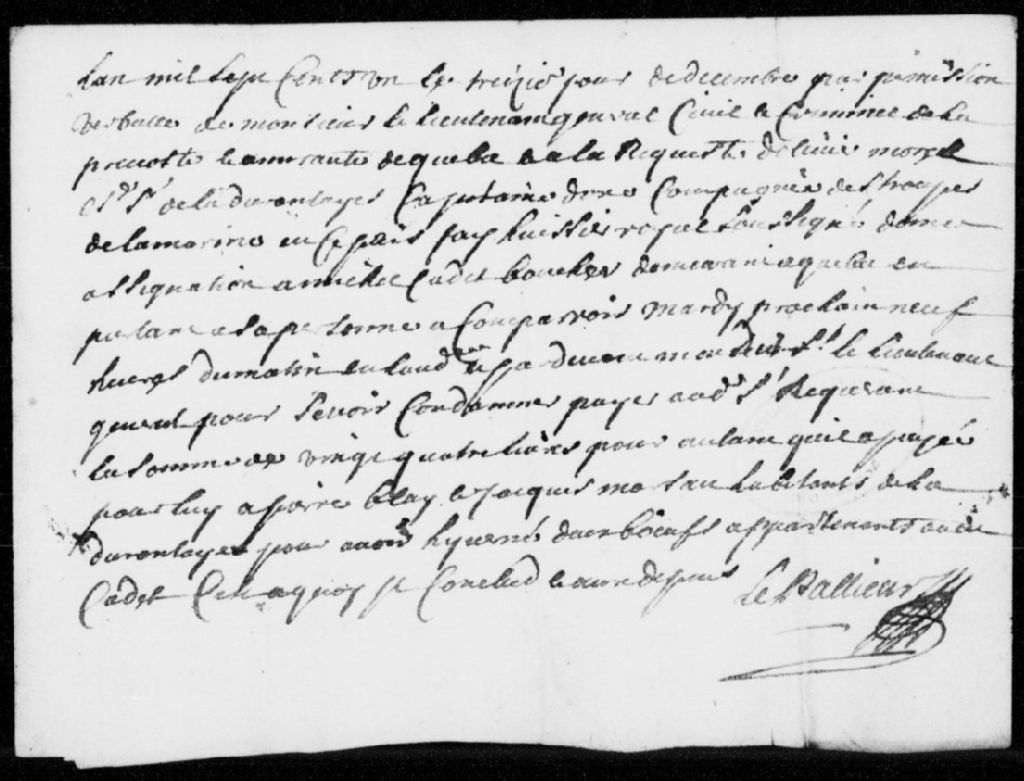 Lan mil sept Cents un le treizie jour de decembre par permission
verballe de monsieur le lieutenant general Civil et Criminel de la
prevosté et amirauté de quebec a la Requeste de olivie morelle
Esr Sr de la durantaye Capitaine dune Compagnie des troupes
de la marine en Ce païs Jay huissier royal soussigné donné
assignation a michel Cadet boucher demeurant a quebec en
parlant a sa personne a Comparroir mardy prochain neuf
heures du matin en laud pardevant mondit Sr le lieutenant
general pour se voir Condamner payer aud Sr Requerant
la somme de vingt quatre livres pour autant quil a payé
pour luy a pierre blay et Jacques moreau habitants de la
durantaye pour avoir hyverné deux boeufs appartenants audit
Cadet Ce a quoy je Conclud et aux depens
Le Pallieur